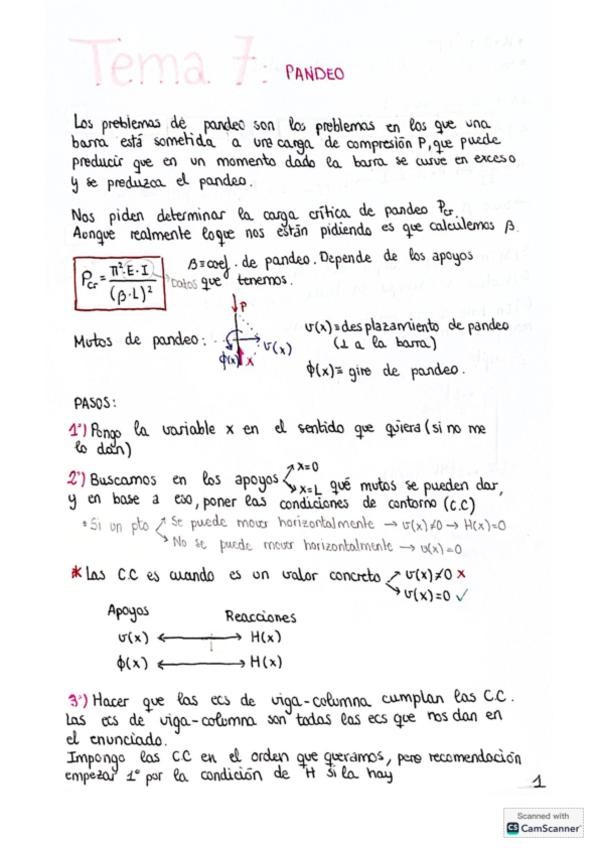 Tema 7: PANDEO
Los problemas de pandeo son los problemas en los que una
barra está sometida a una carga de compresión P, que puede
producir que en un momento dado la barra se curve en exceso
y se produzca el pandeo.
Nos piden determinar la carga crítica de pandeo Pcr.
Aunque realmente lo que nos están pidiendo es que calculemos β.
Pcr = π²·E·I / (β·L)²
datos
β ≡ coef. de pandeo. Depende de los apoyos
que tenemos.
Mutos de pandeo:
P
v(x)
ϕ(x)
x
v(x) ≡ desplazamiento de pandeo
(⊥ a la barra)
ϕ(x) ≡ giro de pandeo.
PASOS:
1º) Pongo la variable x en el sentido que quiera (si no me
lo dan)
2º) Buscamos en los apoyos ↗ x=0 ↘ x=L qué mutos se pueden dar,
y en base a eso, poner las condiciones de contorno (c.c)
• Si un pto ↗ Se puede mover horizontalmente → v(x)≠0 → H(x)=0
↘ No se puede mover horizontalmente → v(x)=0
* Las C.C es cuando es un valor concreto ↗ v(x)≠0 ×
↘ v(x)=0 ✓
Apoyos Reacciones
v(x) ↔ H(x)
ϕ(x) ↔ H(x)
3º) Hacer que las ecs de viga-columna cumplan las C.C.
Las ecs de viga-columna son todas las ecs que nos dan en
el enunciado.
Impongo las CC en el orden que queramos, pero recomendación
empezar 1º por la condición de H si la hay
1
Scanned with
CS CamScanner